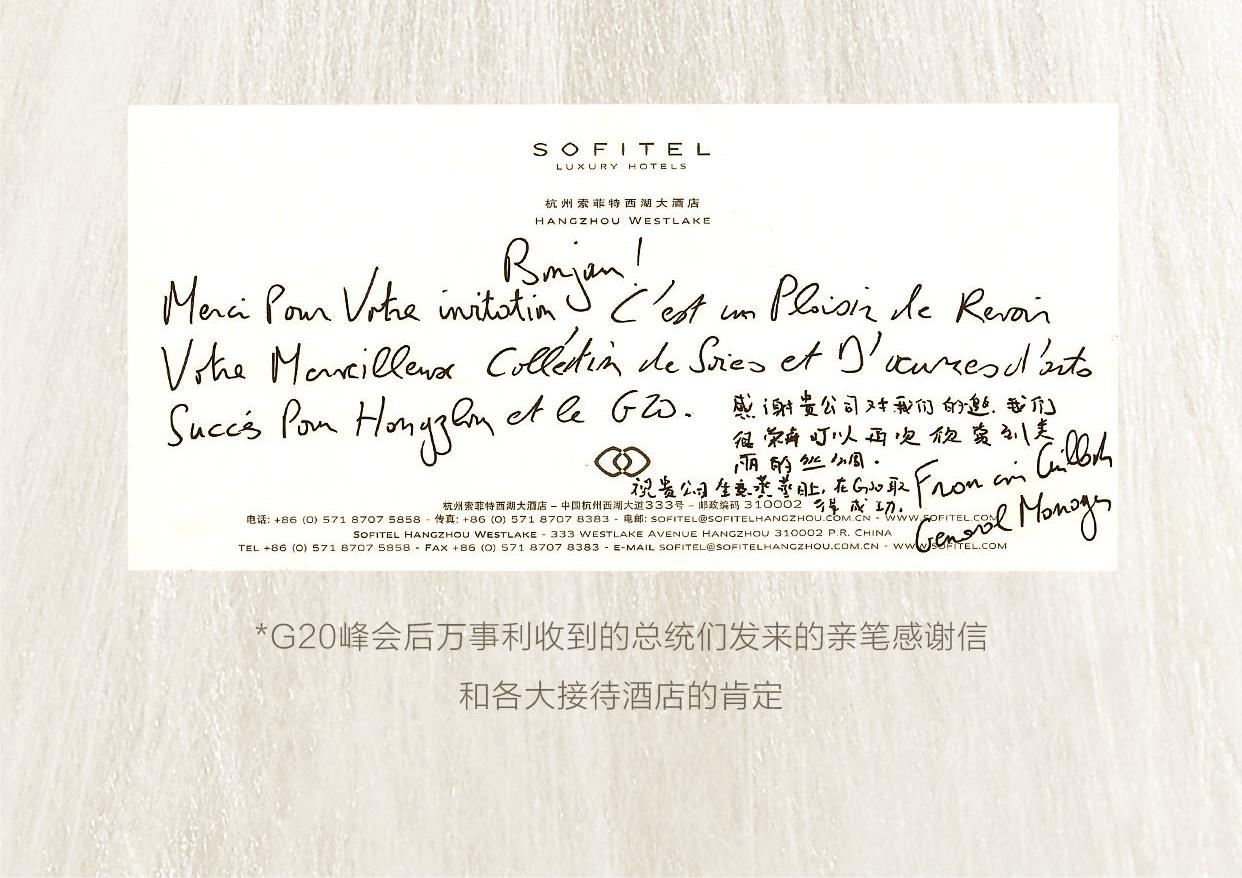 SOFITEL
LUXURY HOTELS
杭州索菲特西湖大酒店
HANGZHOU WESTLAKE
Bonjour!
Merci Pour Votre invitation C'est un Plaisir de Revoir
Votre Merveilleuse Collection de Soies et D'oeuvres d'arts
Succès Pour Hangzhou et le G20.
感谢贵公司对我们的邀. 我们
很荣幸可以再次欣赏到美
丽的丝绸.
祝贵公司生意蒸蒸日上, 在G20取
得成功.
General Manager
杭州索菲特西湖大酒店 – 中国杭州西湖大道333号 – 邮政编码 310002
电话: +86 (0) 571 8707 5858 - 传真: +86 (0) 571 8707 8383 - 电邮: SOFITEL@SOFITELHANGZHOU.COM.CN - WWW.SOFITEL.COM
SOFITEL HANGZHOU WESTLAKE - 333 WESTLAKE AVENUE HANGZHOU 310002 P.R. CHINA
TEL +86 (0) 571 8707 5858 - FAX +86 (0) 571 8707 8383 - E-MAIL SOFITEL@SOFITELHANGZHOU.COM.CN - WWW.SOFITEL.COM
*G20峰会后万事利收到的总统们发来的亲笔感谢信
和各大接待酒店的肯定